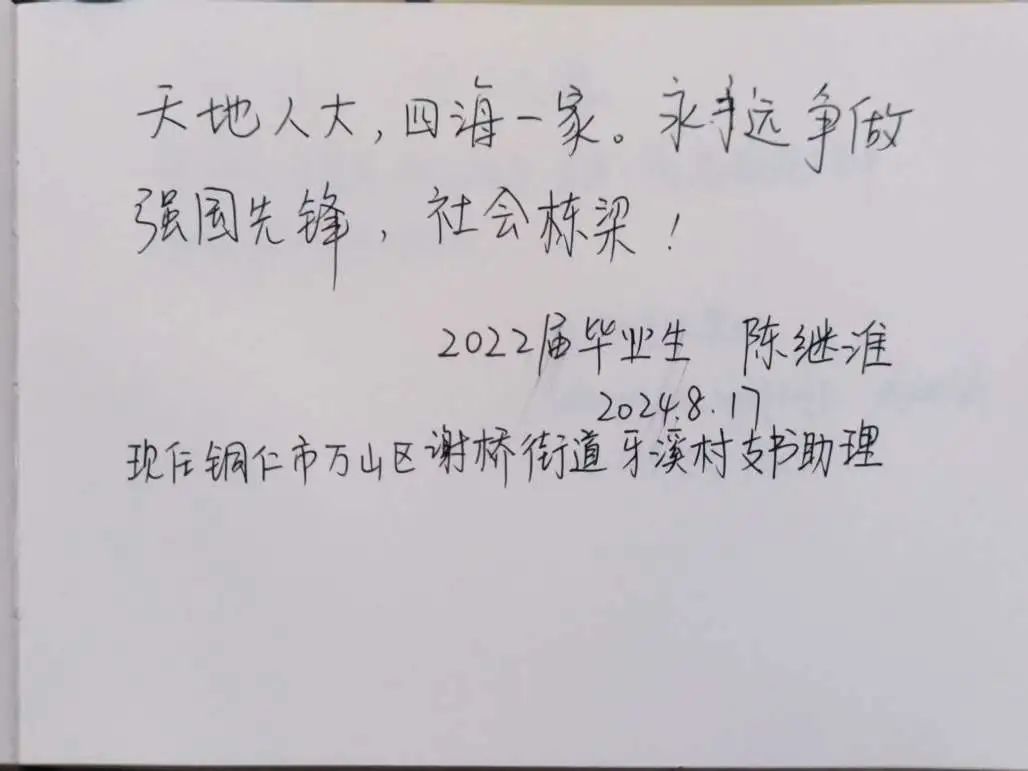 天地人大,四海一家。永远争做
强国先锋,社会栋梁!
2022届毕业生 陈继淮
2024.8.17
现任铜仁市万山区谢桥街道牙溪村支书助理